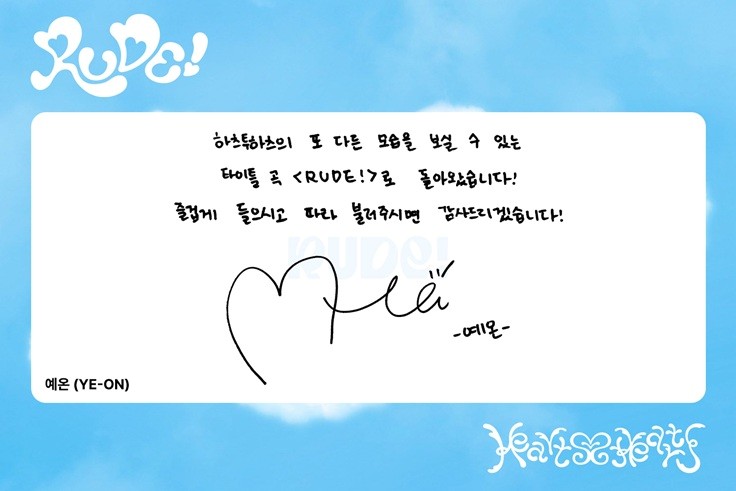 RUDE!
하츠투하츠의 또 다른 모습을 보실 수 있는
타이틀 곡 <RUDE!>로 돌아왔습니다!
즐겁게 들으시고 따라 불러주시면 감사드리겠습니다!
RUDE!
-예온-
예온 (YE-ON)
Hearts2Hearts